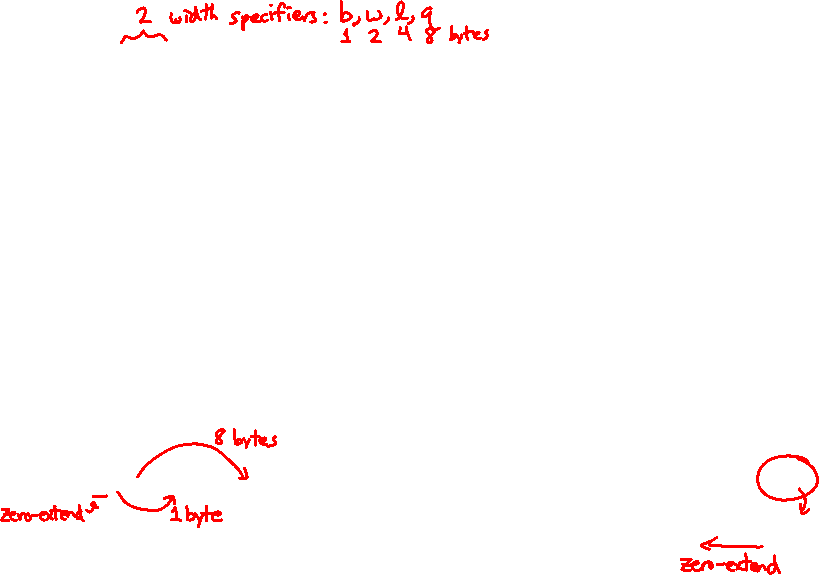 2 width specifiers: b, w, l, q
1 2 4 8 bytes
8 bytes
zero-extend
1 byte
zero-extend